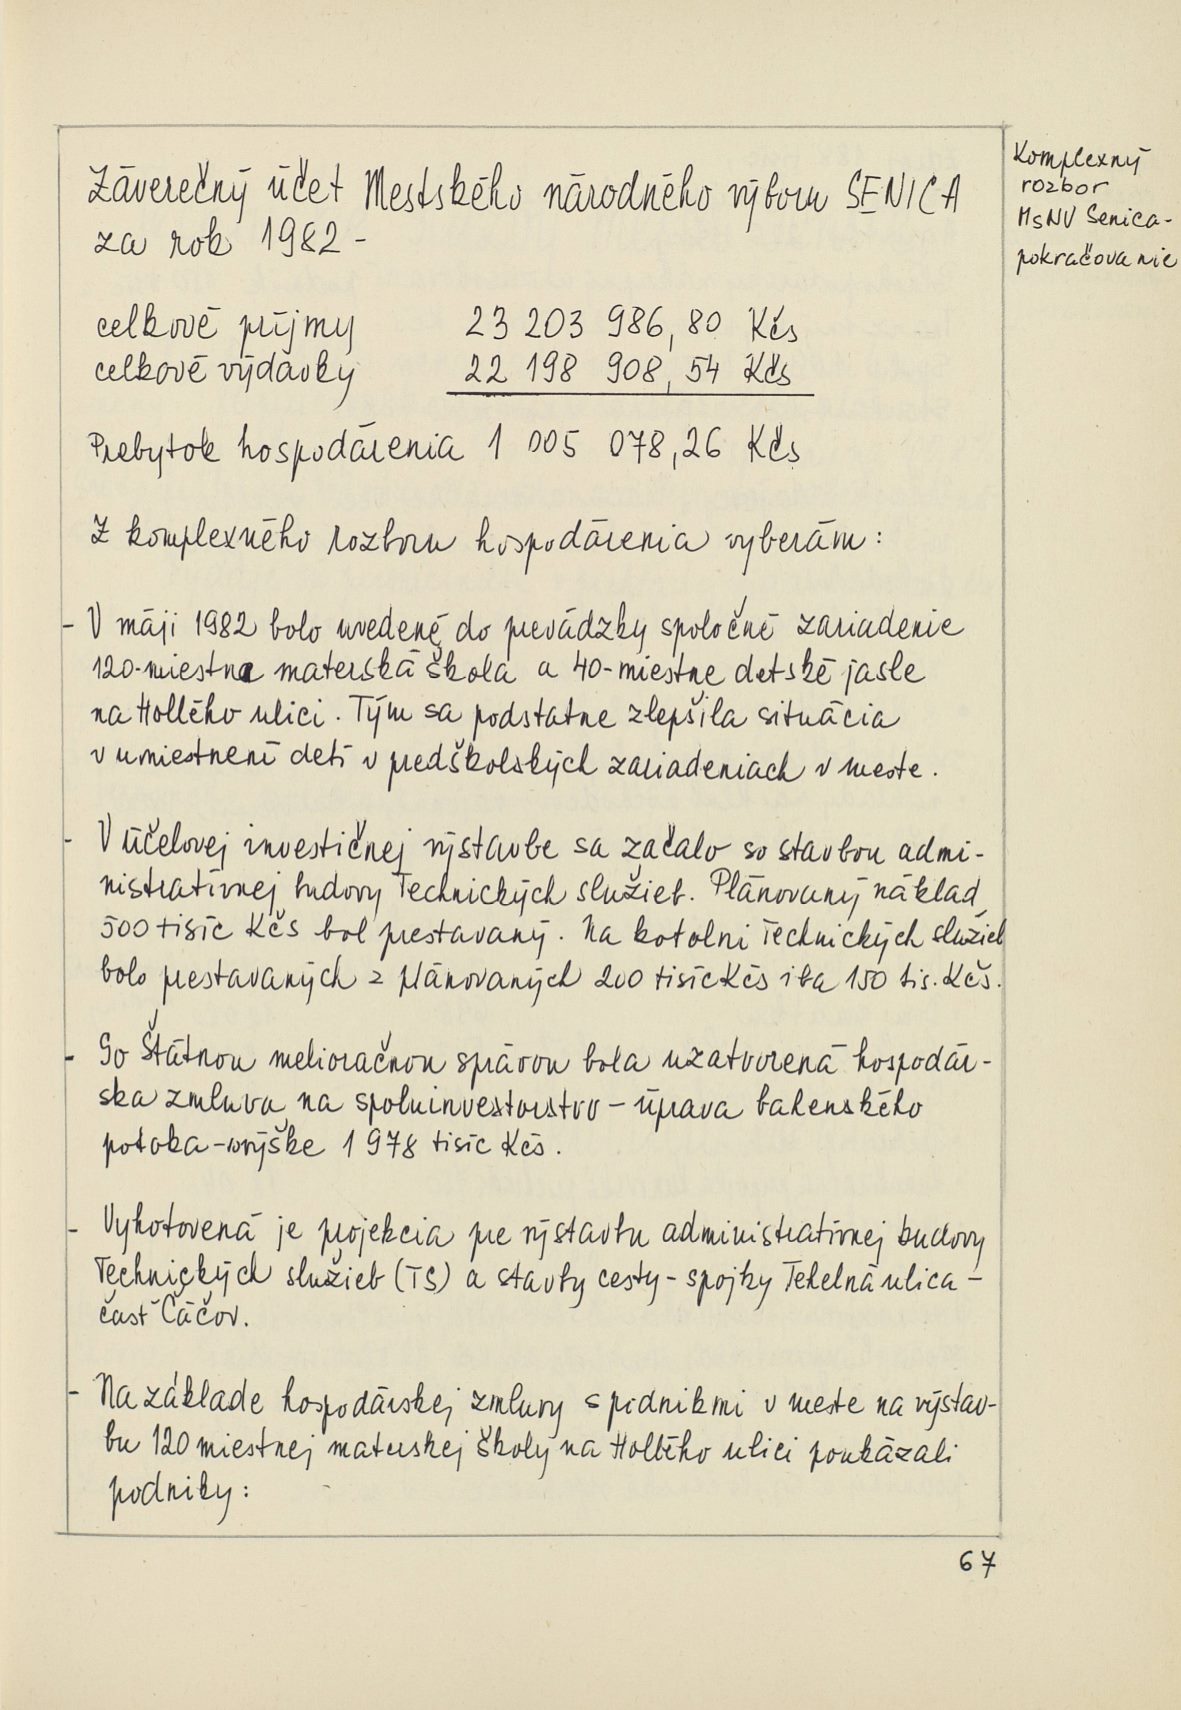 Komplexný
rozbor
MsNV Senica-
pokračovanie
Záverečný účet Mestského národného výboru SENICA
za rok 1982 -
celkové príjmy 23 203 986,80 Kčs
celkové výdavky 22 198 908,54 Kčs
Prebytok hospodárenia 1 005 078,26 Kčs
Z komplexného rozboru hospodárenia vyberám:
- V máji 1982 bolo uvedené do prevádzky spoločné zariadenie
120-miestna materská škola a 40-miestne detské jasle
na Hollého ulici. Tým sa podstatne zlepšila situácia
v umiestnení detí v predškolských zariadeniach v meste.
- V účelovej investičnej výstavbe sa začalo so stavbou admi-
nistratívnej budovy Technických služieb. Plánovaný náklad
500 tisíc Kčs bol prestavaný. Na kotolni Technických služieb
bolo prestavaných z plánovaných 200 tisíc Kčs iba 150 tis. Kčs.
- So Štátnou melioračnou správou bola uzatvorená hospodár-
ska zmluva na spoluinvestorstvo - úprava bahenského
potoka - vo výške 1 978 tisíc Kčs.
- Vyhotovená je projekcia pre výstavbu administratívnej budovy
Technických služieb (TS) a stavby cesty - spojky Tehelná ulica -
časť Čáčov.
- Na základe hospodárskej zmluvy s podnikmi v meste na výstav-
bu 120 miestnej materskej školy na Hollého ulici poukázali
podniky:
67